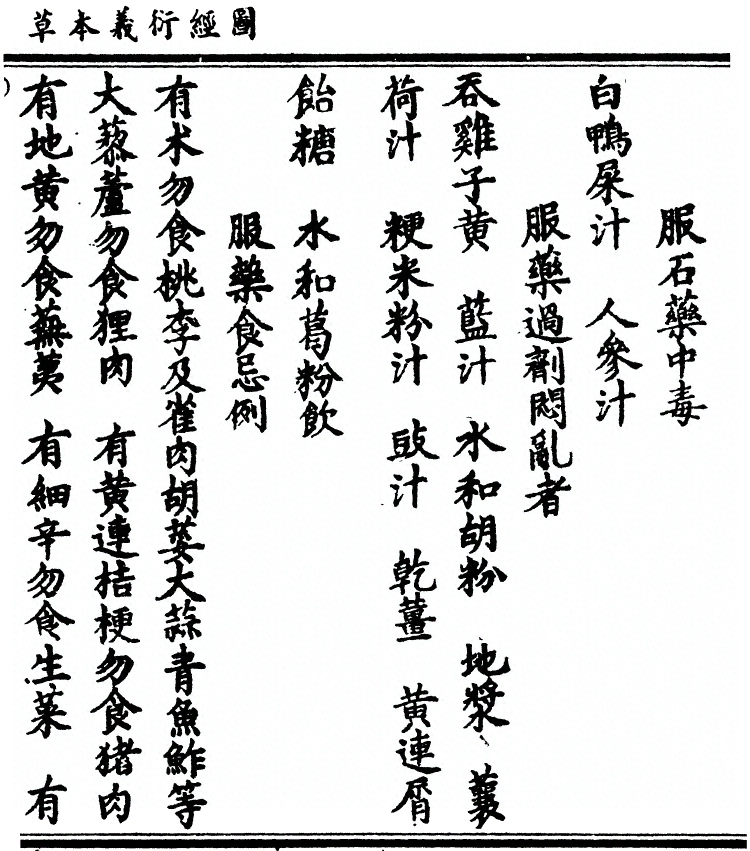 圖經衍義本草
服石藥中毒
白鴨屎汁　人參汁
服藥過劑悶亂者
吞雞子黃　藍汁　水和胡粉　地漿　蘘
荷汁　粳米粉汁　豉汁　乾薑　黃連屑
飴糖　水和葛粉飲
服藥食忌例
有朮勿食桃李及雀肉胡荽大蒜青魚鮓等
大藜蘆勿食狸肉　有黃連桔梗勿食猪肉
有地黃勿食蕪荑　有細辛勿食生菜　有